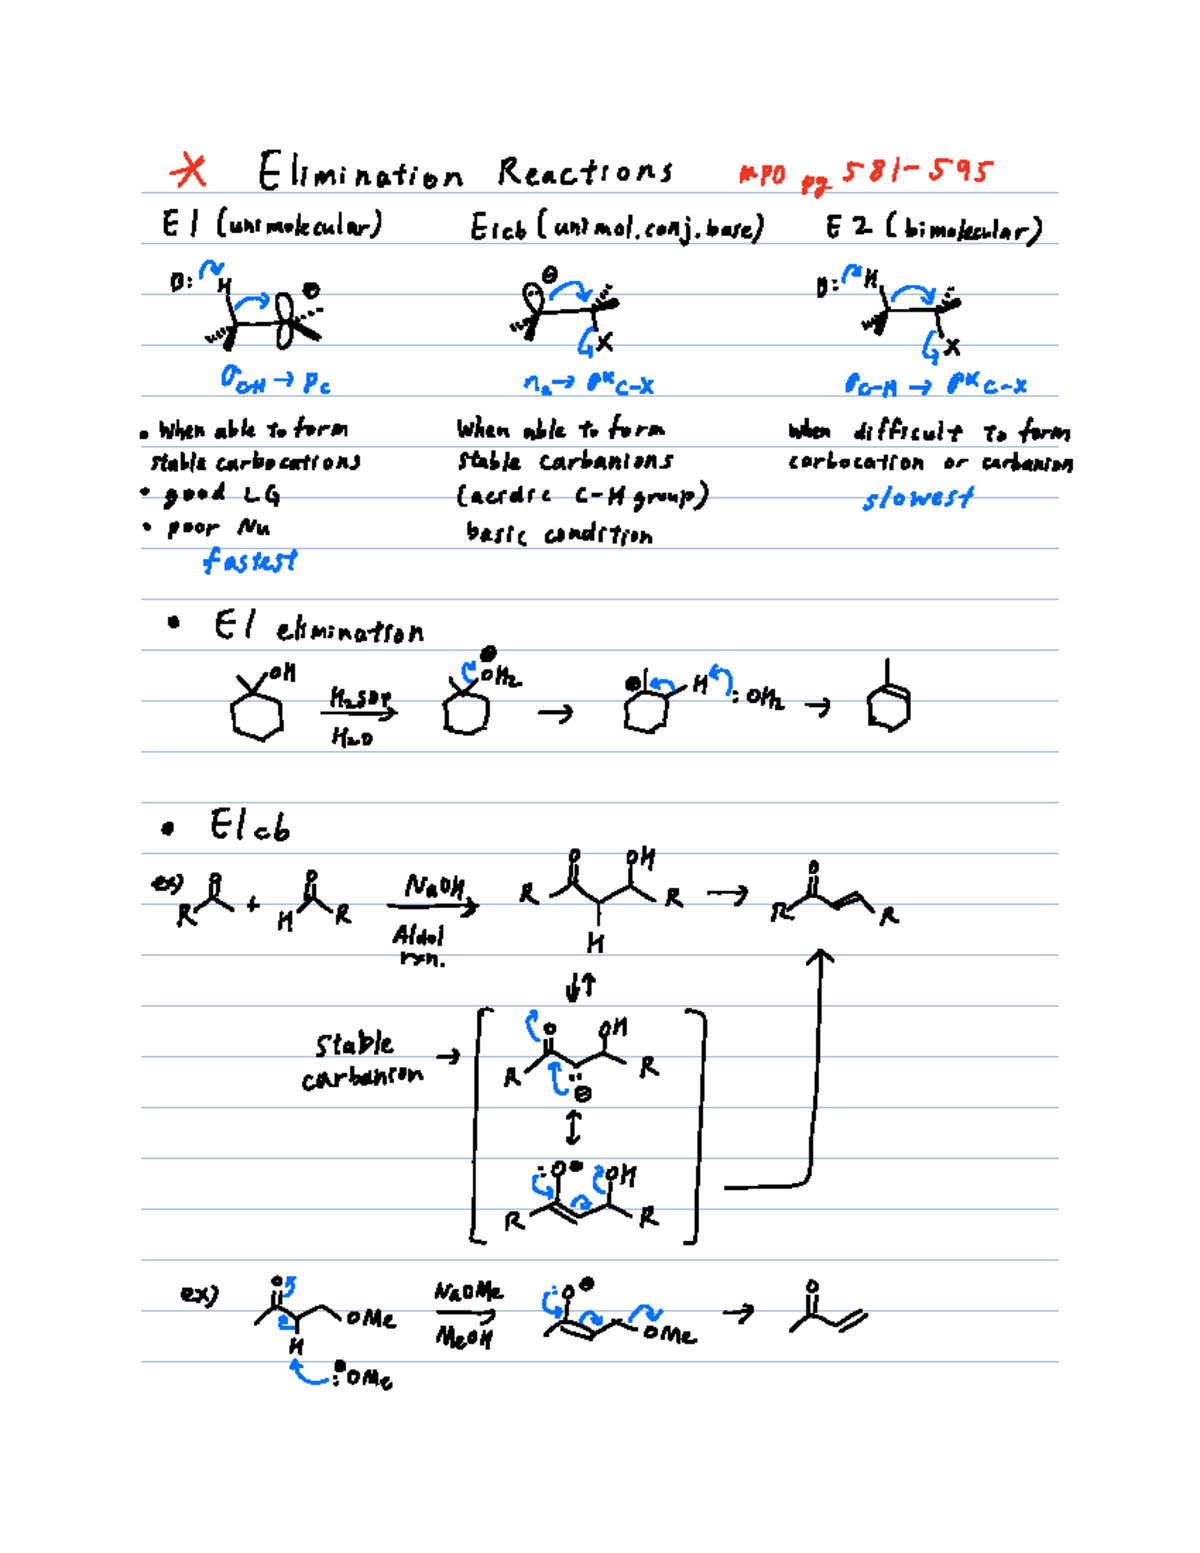 * Elimination Reactions MPO pg 581-595
E1 (unimolecular) E1cb (unimol. conj. base) E2 (bimolecular)
B: H ⊕ ⊖ X B: H X
σC-H → pC n2 → σ* C-X σC-H → σ* C-X
• When able to form When able to form When difficult to form
stable carbocations stable carbanions carbocation or carbanion
• good LG (acidic C-H group) slowest
• poor Nu basic condition
fastest
• E1 elimination
OH H2SO4 ⊕ OH2 ⊕ H :OH2
H2O
• E1cb
ex) R O + H O R NaOH R O OH R → R O R
Aldol
rxn.
H
Stable
carbanion → R O OH R
⊖
R :O⊖ OH R
ex) O OMe NaOMe :O⊖ OMe → O
H MeOH
:⊖OMe